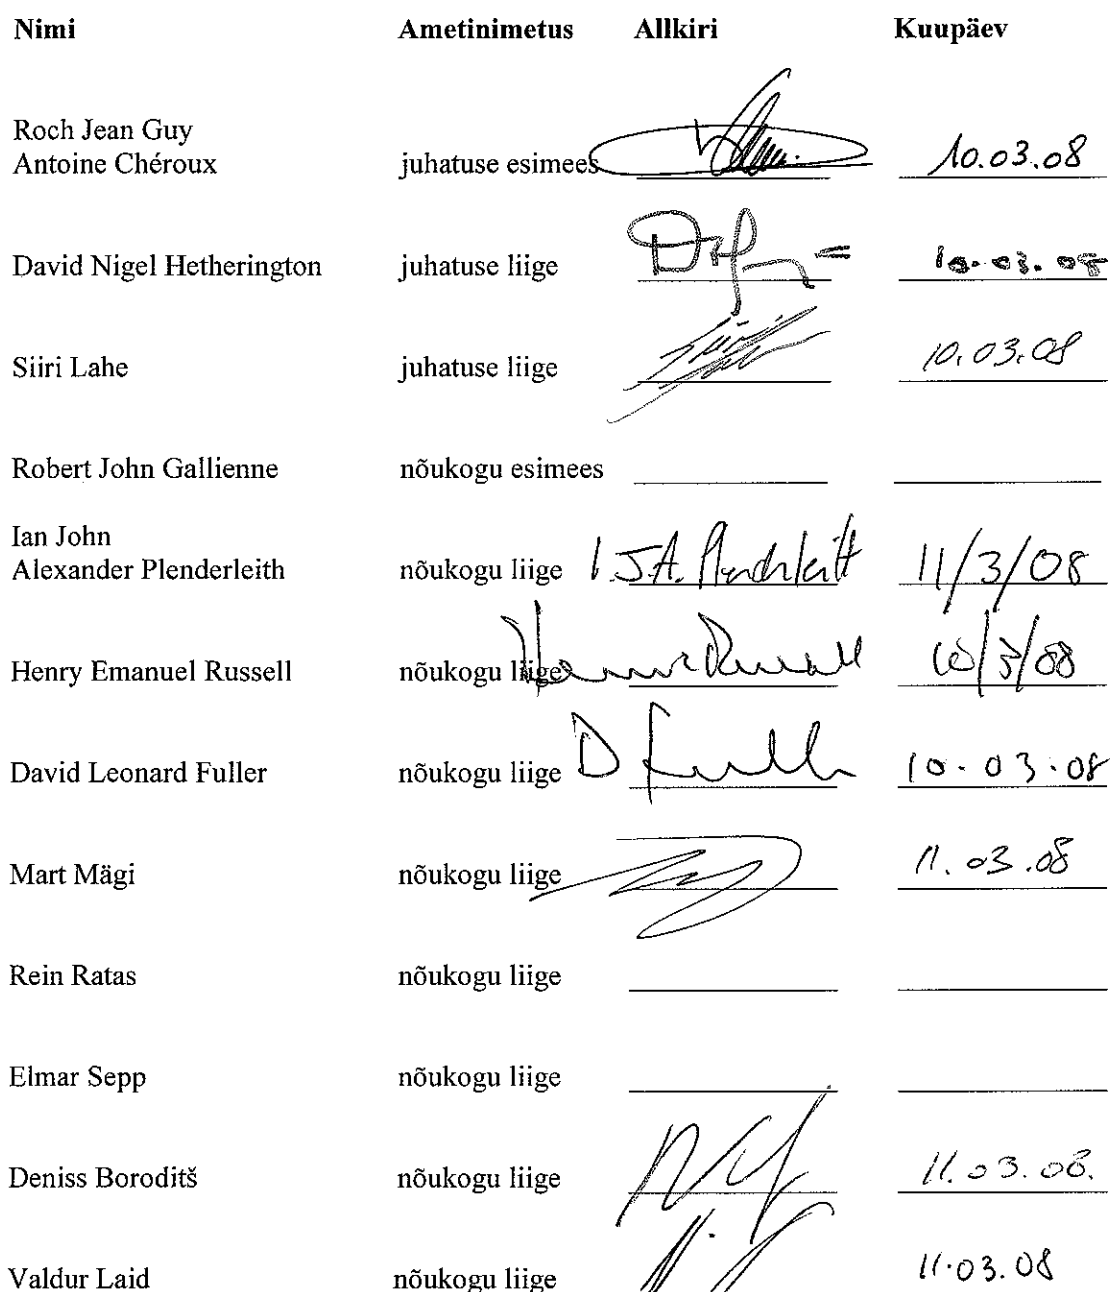 Nimi Ametinimetus Allkiri Kuupäev
Roch Jean Guy
Antoine Chéroux juhatuse esimees 10.03.08
David Nigel Hetherington juhatuse liige 10.03.08
Siiri Lahe juhatuse liige 10.03.08
Robert John Gallienne nõukogu esimees
Ian John
Alexander Plenderleith nõukogu liige I.J.A. Plenderleith 11/3/08
Henry Emanuel Russell nõukogu liige Henry Russell 10/3/08
David Leonard Fuller nõukogu liige D Fuller 10.03.08
Mart Mägi nõukogu liige 11.03.08
Rein Ratas nõukogu liige
Elmar Sepp nõukogu liige
Deniss Boroditš nõukogu liige 11.03.08.
Valdur Laid nõukogu liige 11.03.08